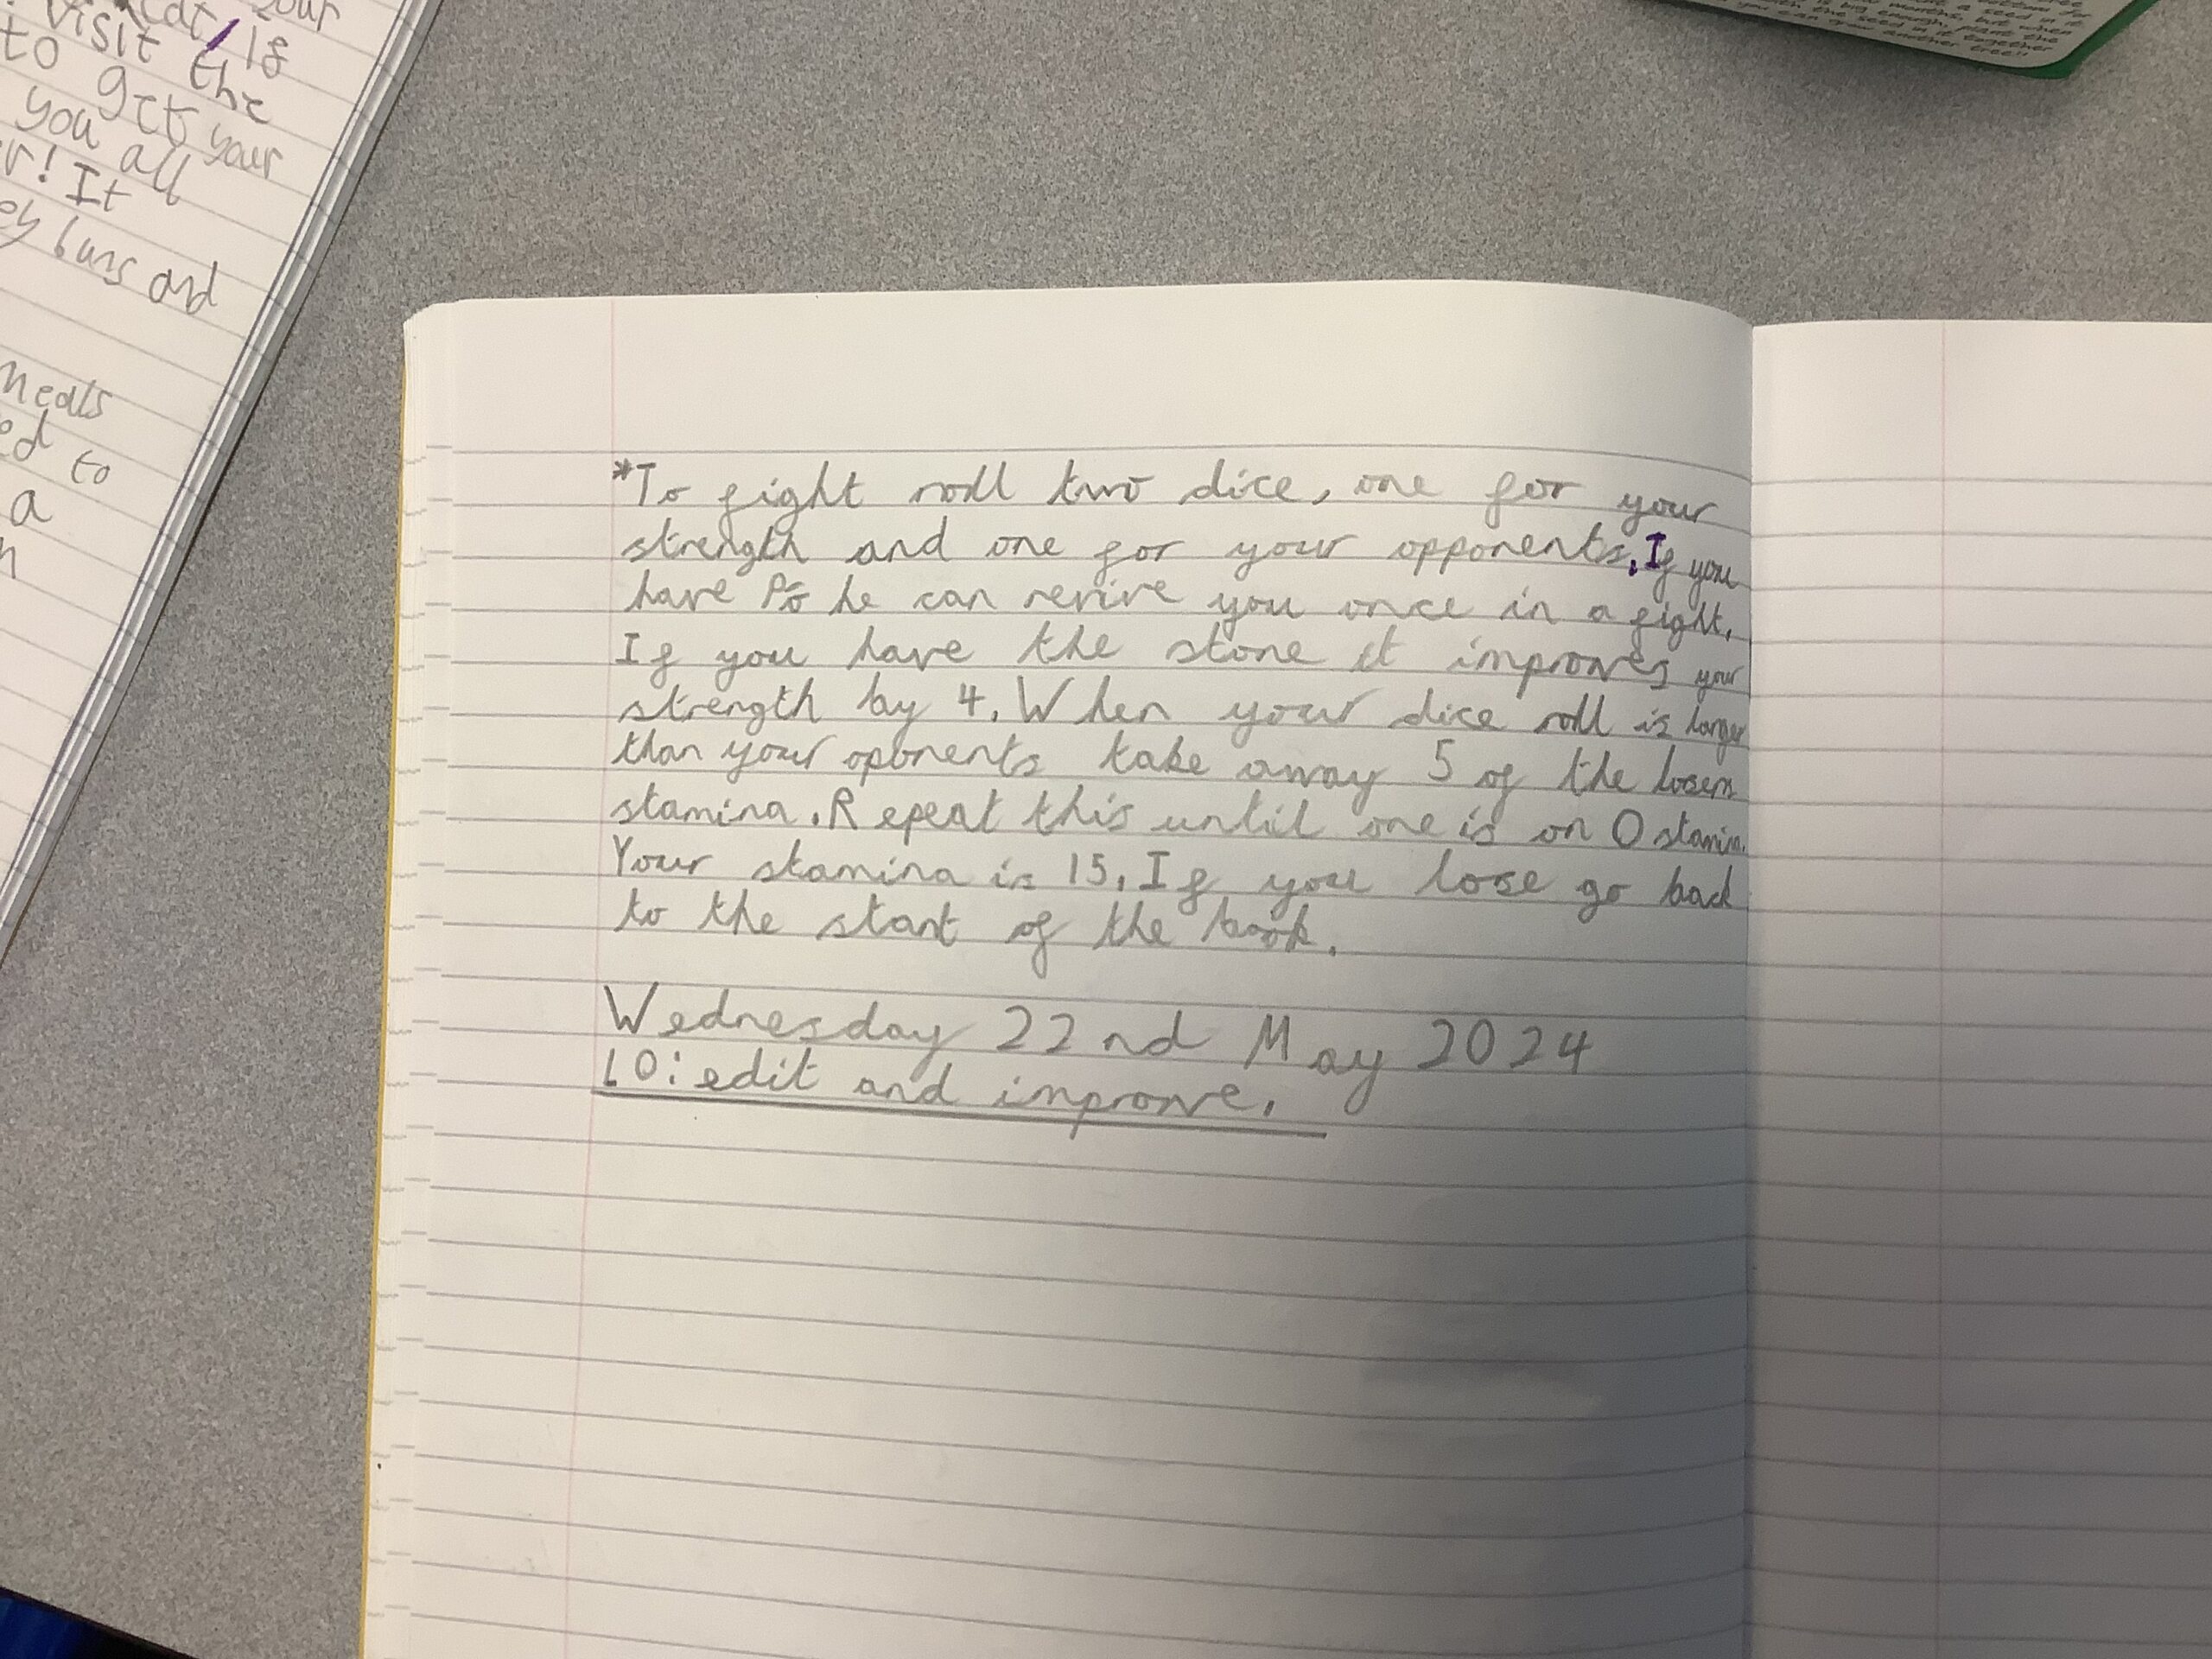 your
visit
cat, if
to get the
you all your
r! It
ey buns and
meals
ed to
a
n
*To fight roll two dice, one for your
strength and one for your opponents. If you
have Po he can revive you once in a fight.
If you have the stone it improves your
strength by 4. When your dice roll is larger
than your oponents take away 5 of the losers
stamina. Repeat this until one is on 0 stamina.
Your stamina is 15. If you lose go back
to the start of the book.
Wednesday 22nd May 2024
LO: edit and improve.